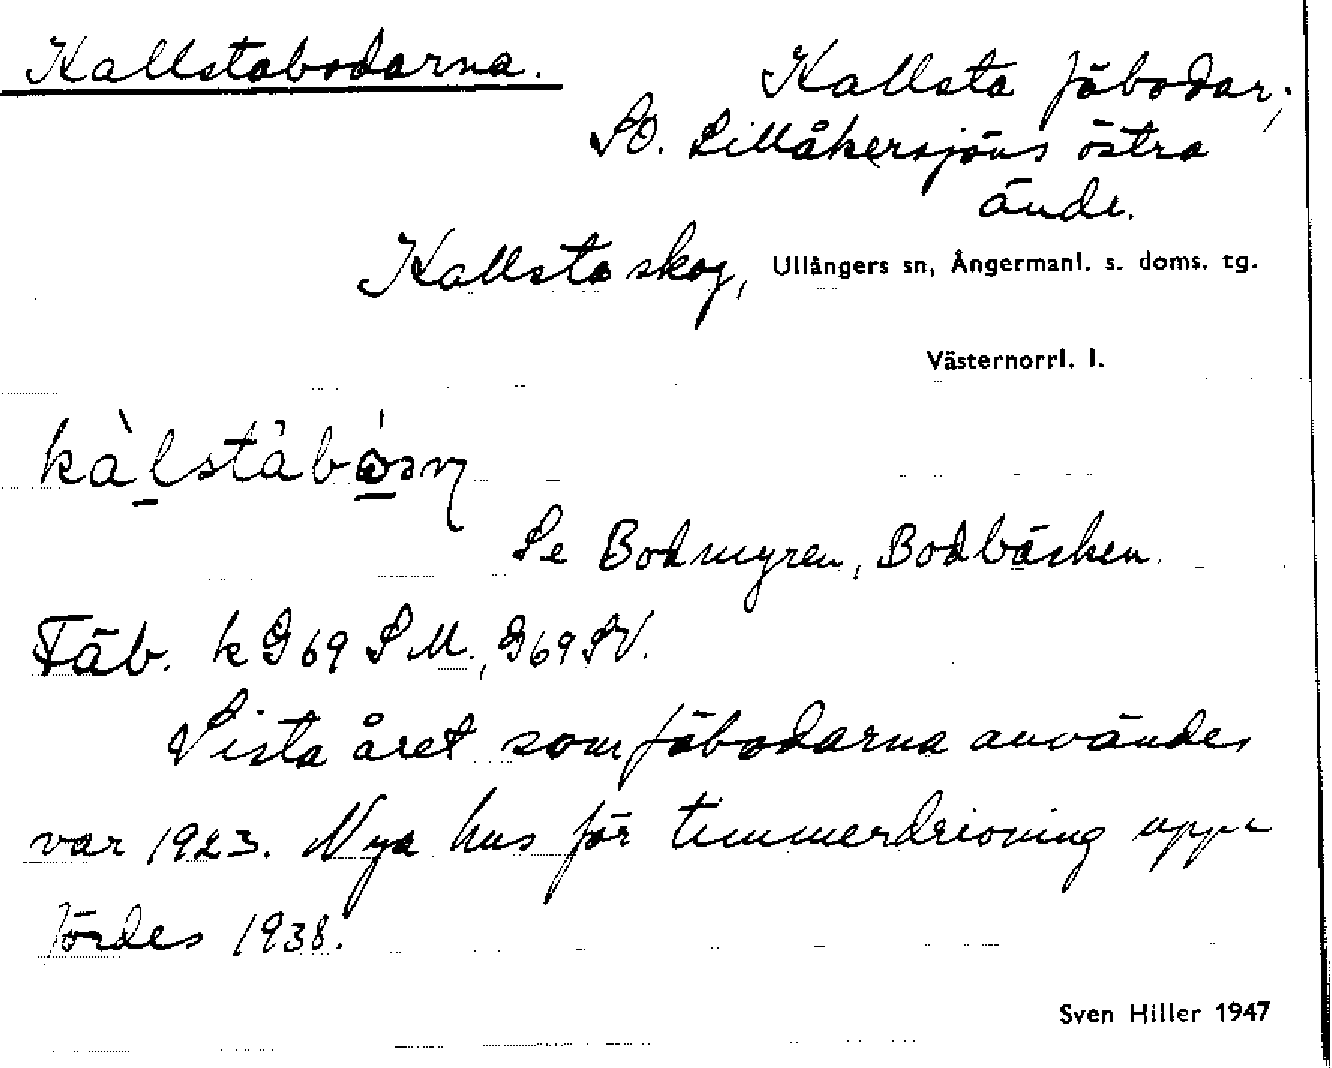 Kallstabodarna.
Kallsta fäbodar;
SO. Lillåkersjöns östra
ände.
Kallsta skog, Ullångers sn, Ångermanl. s. doms. tg.
Västernorrl. l.
Se Bodmyren, Bodbäcken.
Fäb. k G69 SM., G69 SV.
Sista året som fäbodarna användes
var 1923. Nya hus för timmerdrivning uppe
fördes 1938.
Sven Hiller 1947